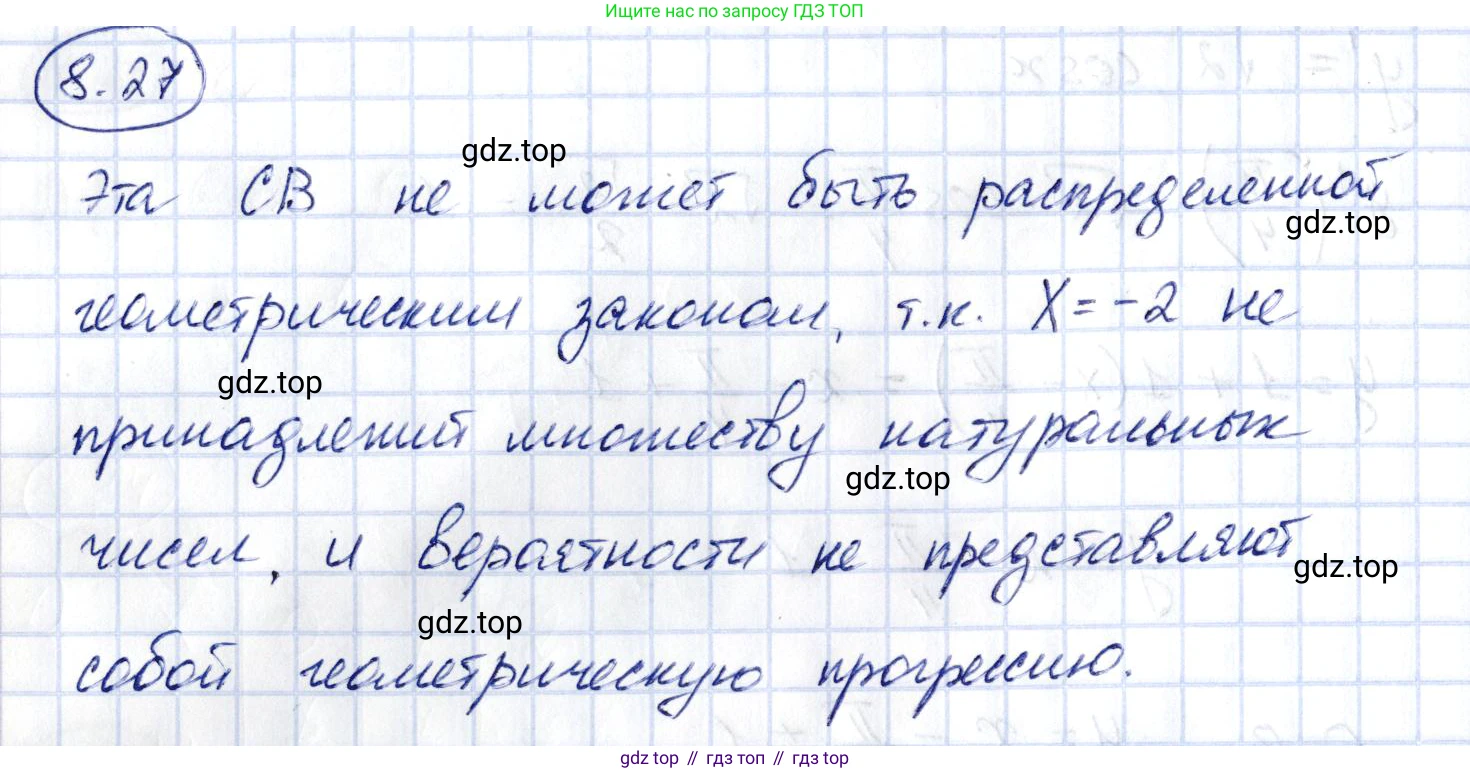 Ищите нас по запросу ГДЗ ТОП
8.27
gdz.top
Эта СВ не может быть распределенной
gdz.top
геометрическим законом, т.к. X = -2 не
gdz.top
принадлежит множеству натуральных
gdz.top
чисел, и вероятности не представляют
gdz.top
gdz.top
собой геометрическую прогрессию.
gdz.top // гдз топ // гдз.top